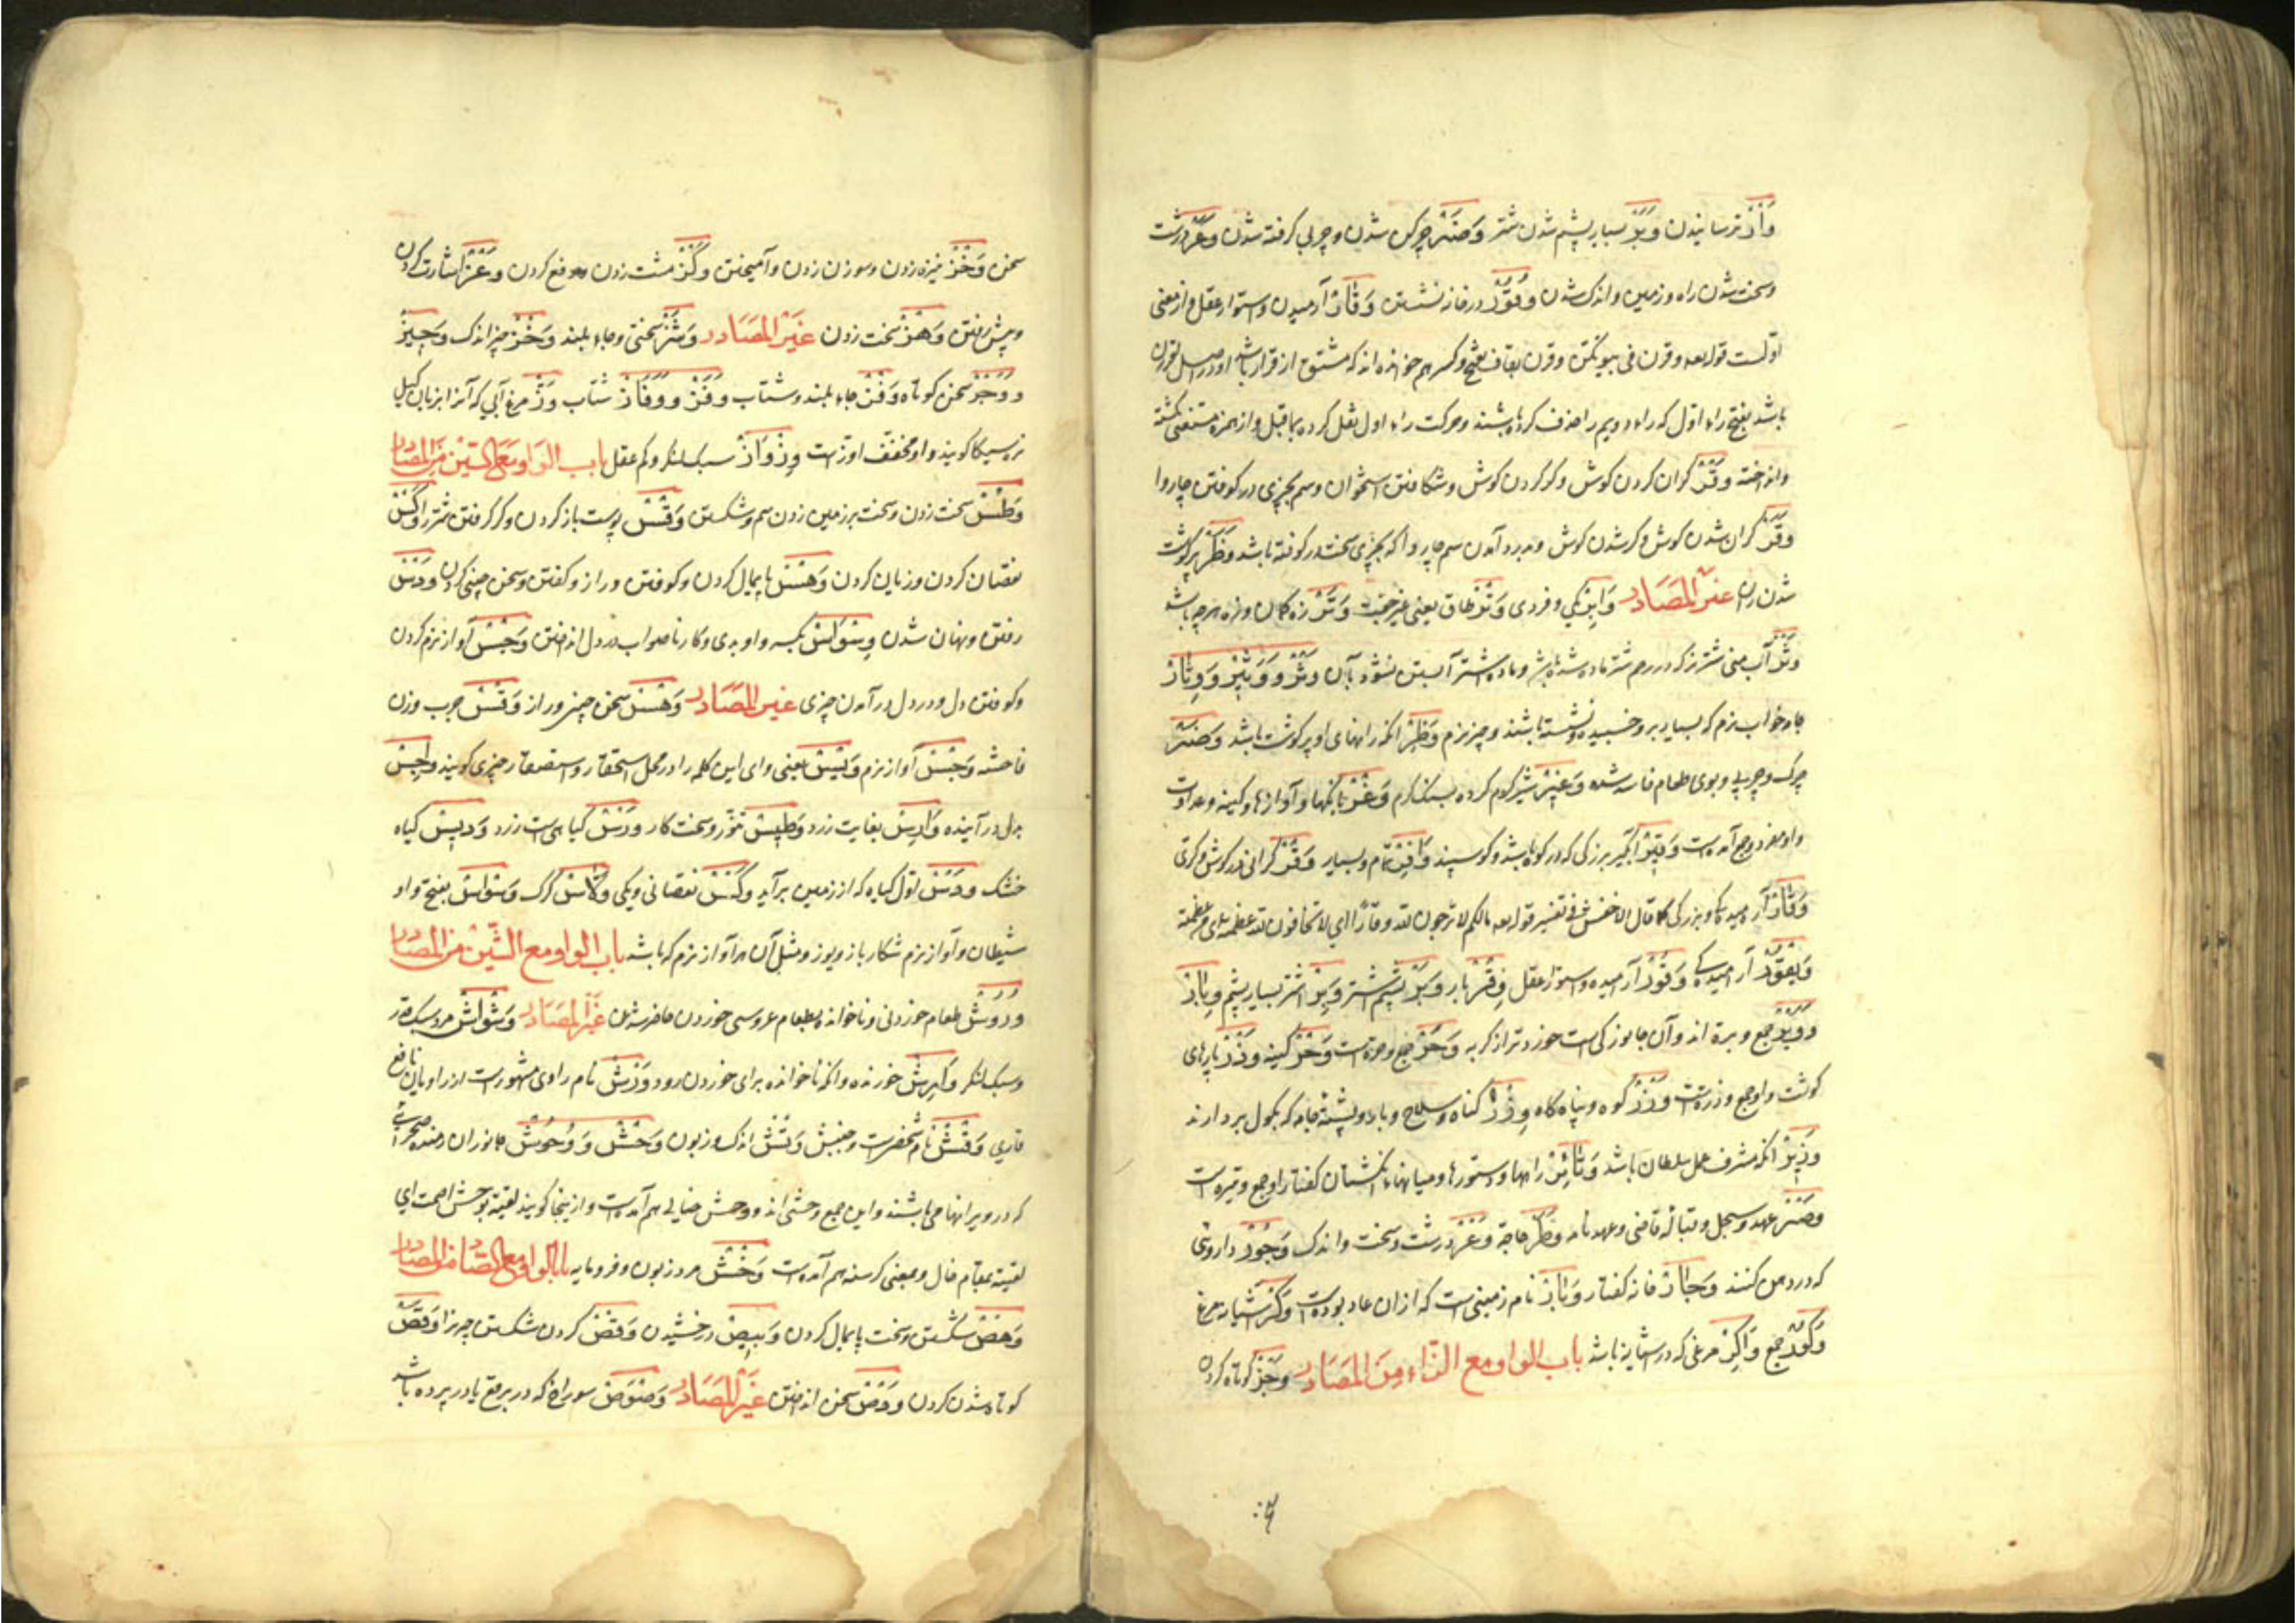 وَأر ترسانیدن وَبَر بسیار پشم شدن شتر وَضَر چرکن شدن و چربی گرفته شدن وَعر درشت
و سخت شدن راه و زمین و اندک شدن وُقُور در خانه نشستن وَقار آرمیدن و استوار عقل و از معنی
اولست قوله تعه وقرن فی بیوتکن وقرن بقاف بفتح و کسر هم خوانده اند که مشتق از قرار باشد و در اصل اقررن
باشد بفتح راء اول که راء دویم را حذف کرده باشند و حرکت راء اول نقل کرده بما قبل و از همزه مستغنی گشته
و انداخته وَقر گران کردن گوش و کر کردن گوش و شکافتن استخوان و سم بچیزی در کوفتن چاروا
وَقَر گران شدن گوش و کر شدن گوش و بدرد آمدن سم چاروا که بچیزی سخت در کوفته باشد وَظَر پر گوشت
شدن ران غیر المصادر وَابِر یکی و فردی وَتر طاق یعنی غیر جفت وَتَر زه کمان و زه هر چه باشد
وَثر آب منی شتر نر که در رحم شتر ماده شده باشد و ماده شتر آبستن نشود بآن وَثر و وَثیر و وِثار
جاء خواب نرم که بسیار بر و خسبیده و نشسته باشند و چیز نرم وَظِر آنکه رانهای او پر گوشت باشد وَضَر
چرک و چربی و بوی طعام فاسد شده وَغیر شیر گرم کرده بسنگ گرم وَغر بانگها و آوازها و کینه و عداوت
و او مفرد و جمع آمدست وَقیر آبگیر بزرگی که در کوه باشد و گوسپند وَافِر تمام و بسیار وَقر گرانی در گوش و کری
وَقار آرمیدگی و بزرگی کما قال الاخفش فی تفسیر قوله تعه مالکم لا ترجون لله وقارا ای لا تخافون لله عظمة ای عظمة
وَیقور آرمیدگی وَقُور آرمیده و استوار عقل وِقر بار وَبَر پشم شتر وَبِر اشتر بسیار پشم وِبار
و وُبر جمع وبرة اند و آن جانورکی است خوردتر از گربه وَحَر جمع وحرة است وَحَر کینه وَذر پارهای
گوشت و او جمع وذرة است وَزَر کوه و پناه گاه وِزر گناه و سلاح و بار و پشتۀ جامه که بکول بردارند
وَزیر آنکه مشرف عمل سلطان باشد وَتائر راهها و دستورها و میانهاء انگشتان کفتار و او جمع وتیره است
وَصَر عهد و سجل و قبالۀ قاضی و عهد نامه وَطَر حاجة وَعر درشت و سخت و اندک وَجُور داروئی
که در دهن کنند وَجار خانه کفتار وَبار نام زمینی است که از ان عاد بوده است وَکر آشیانه مرغ
وُکور جمع وَاکِر مرغی که در آشیانه باشد باب الواو مع الزاء من المصادر وَجز کوتاه کردن
سخن وَخز نیزه زدن و سوزن زدن و آمیختن وَکز مشت زدن و دفع کردن وَعز اشارت کردن
و پیش رفتن وَهز سخت زدن غیر المصادر وَشز سختی و جاء بلند وَخز چیز اندک وَجیز
و وَجز سخن کوتاه وَفز جاء بلند و شتاب وَفَز و وِفاز شتاب وَز مرغ آبی که آنرا بزبان گیل
سیکا گویند و او مخفف اوزست وِزواز سبک لنگر و کم عقل باب الواو مع السین من المصادر
وَطس سخت زدن و سخت بر زمین زدن سم و شکستن وَقس پوست باز کردن و گر گرفتن شتر را وَکس
نقصان کردن و زیان کردن وَهس پایمال کردن و کوفتن و راز گفتن و سخن چینی کردن وَدس
رفتن و پنهان شدن وِسواس بکسر واو بدی و کار ناصواب در دل انداختن وَجس آواز نرم کردن
و کوفتن دل و در دل در آمدن چیزی غیر المصادر وَهس سخن چینی و راز وَقس جرب و زن
فاحشه وَجس آواز نرم وَیس یعنی وای این کلمه را در محل استحقار و استصغار چیزی گویند وَاجِس
بدل در آینده وَارِس بغایت زرد وَطیس تنور و سخت کار وَرس گیاهی است زرد وَدیس گیاه
خشک وَدس اول گیاه که از زمین برآید وَکس نقصانی و یکی ولاس گرگ وَسواس بفتح واو
شیطان و آواز نرم شکار باز و یوز و مثل آن هر آواز نرم که باشد باب الواو مع الشین من المصادر
وُروش طعام خوردنی و ناخوانده بطعام عروسی خوردن حاضر شدن غیر المصادر وَشواش مرد سبک قدر
و سبک لنگر وَارِش خورنده و آنکه ناخوانده برای خوردن رود وَرش نام راوی مشهورست از راویان نافع
قاری وَقش نام شخصی است و جنبش وَتش اندک و زبون وَحش و وُحُوش جانوران رمنده صحرائی
که در ویرانها می باشند و این جمع وحشی اند و وحش خالی هم آمدست و از اینجا گویند لقیته بوحش اصمت ای
لقیته بمقام خال و بمعنی گرسنه هم آمدست وَخش مرد زبون و فرومایه باب الواو مع الصاد من المصادر
وَهص شکستن و سخت پایمال کردن وَبیص درخشیدن وَقص گردن شکستن چیز را وَقَص
کوتاه شدن گردن وَدص سخن انداختن غیر المصادر وَصوَص سوراخ که در برقع یا در پرده باشد